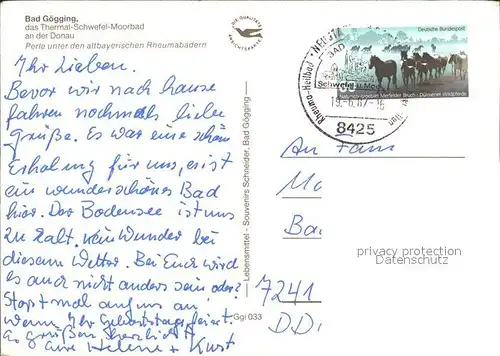 Bad Gögging,
das Thermal-Schwefel-Moorbad
an der Donau
Perle unter den altbayerischen Rheumabädern
Ihr Lieben.
Bevor wir nach hause
fahren nochmals liebe
Grüße. Es war eine schöne
Erholung für uns, es ist
ein wunderschönes Bad
hier. Der Bodensee ist uns
zu kalt, kein Wunder bei
diesem Wetter. Bei Euch wird
es auch nicht anders sein oder?
Stoßt mal auf uns an
wenn Ihr Geburtstag feiert.
Es grüßen herzlichst
Eure Helene + Kurt
Lebensmittel - Souvenirs Schneider, Bad Gögging
Ggi 033
Deutsche Bundespost
Naturschutzgebiet Merfelder Bruch · Dülmener Wildpferde
Rheuma-Heilbad
BAD
Schwefel u Moor
19.-6.87-16
8425
An Fam
Ba
7241
D.D.
privacy protection
Datenschutz